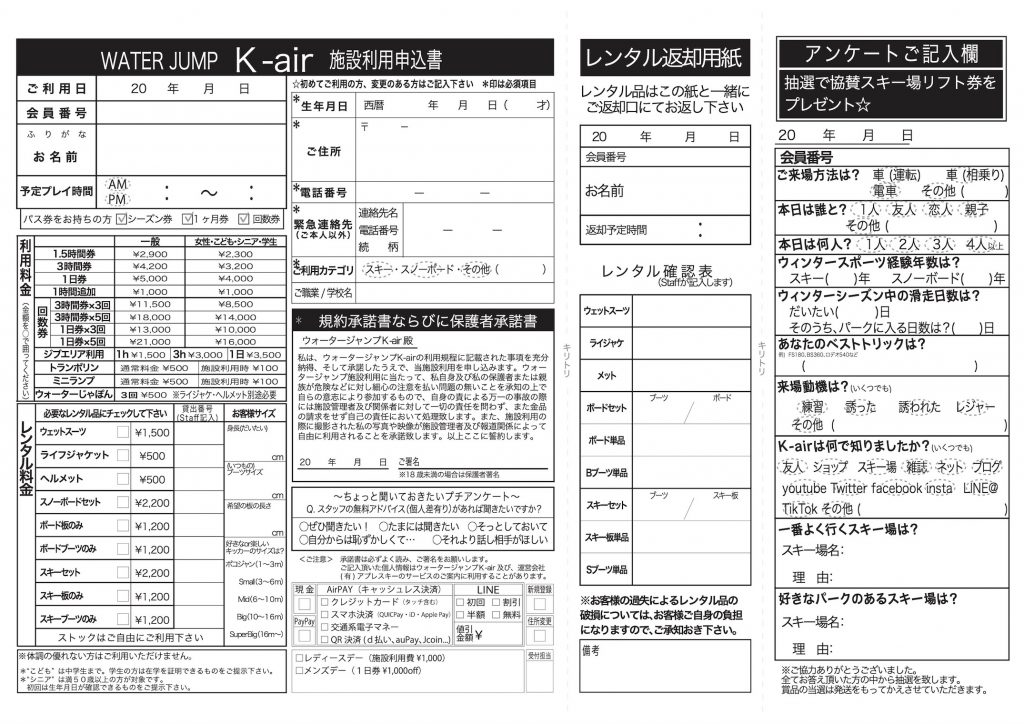 WATER JUMP K-air 施設利用申込書
ご利用日 20 年 月 日
会員番号
ふりがな
お名前
予定プレイ時間 AM PM : ～ :
パス券をお持ちの方 シーズン券 1ヶ月券 回数券
利用料金(金額を○で囲ってください)
一般 女性・こども・シニア・学生
1.5時間券 ¥2,900 ¥2,300
3時間券 ¥4,200 ¥3,200
1日券 ¥5,000 ¥4,000
1時間追加 ¥1,000 ¥1,000
回数券
3時間券×3回 ¥11,500 ¥8,500
3時間券×5回 ¥18,000 ¥14,000
1日券×3回 ¥13,000 ¥10,000
1日券×5回 ¥21,000 ¥16,000
ジブエリア利用 1h ¥1,500 3h ¥3,000 1日 ¥3,500
トランポリン 通常料金 ¥500 施設利用時 ¥100
ミニランプ 通常料金 ¥500 施設利用時 ¥100
ウォーターじゃぼん 3回 ¥500 ※ライジャケ・ヘルメット別途必要
レンタル料金
必要なレンタル品にチェックして下さい 貸出番号(Staff記入) お客様サイズ
ウェットスーツ ¥1,500
ライフジャケット ¥500
ヘルメット ¥500
スノーボードセット ¥2,200
ボード板のみ ¥1,200
ボードブーツのみ ¥1,200
スキーセット ¥2,200
スキー板のみ ¥1,200
スキーブーツのみ ¥1,200
身長(だいたい)
cm
(いつもの)
ブーツサイズ
cm
希望の板の長さ
cm
好きなor楽しい
キッカーのサイズは?
ポコジャン(1～3m)
Small(3～6m)
Mid(6～10m)
Big(10～16m)
SuperBig(16m～)
ストックはご自由にご利用下さい
※体調の優れない方はご利用いただけません。
＊"こども" は中学生まで。学生の方は在学を証明できるものをご提示下さい。
＊"シニア" は満50歳以上の方が対象です。
初回は生年月日が確認できるものをご提示下さい。
☆初めてご利用の方、変更のある方はご記入下さい ＊印は必須項目
＊生年月日 西暦 年 月 日( 才)
＊ご住所 〒 ー
＊電話番号 ー ー
＊緊急連絡先(ご本人以外)
連絡先名
電話番号 ー ー
続柄
＊ご利用カテゴリ スキー・スノーボード・その他( )
ご職業/学校名
＊ 規約承諾書ならびに保護者承諾書
ウォータージャンプK-air 殿
私は、ウォータージャンプK-airの利用規程に記載された事項を充分
納得、そして承諾したうえで、当施設利用を申し込みます。ウォー
タージャンプ施設利用に当たって、私自身及び私の保護者または親
族が危険などに対し細心の注意を払い問題の無いことを承知の上で
自らの意志により参加するもので、自身の責による万一の事故の際
には施設管理者及び関係者に対して一切の責任を問わず、また金品
の請求をせず自己の責任において処理致します。また、施設利用の
際に撮影された私の写真や映像が施設管理者及び報道関係によって
自由に利用されることを承諾致します。以上ここに誓約します。
20 年 月 日 ご署名
※18歳未満の場合は保護者署名
～ちょっと聞いておきたいプチアンケート～
Q. スタッフの無料アドバイス(個人差有り)があれば聞きたいですか?
○ぜひ聞きたい! ○たまには聞きたい ○そっとしておいて
○自分からは恥ずかしくて… ○それより話し相手がほしい
<ご注意> 承諾書は必ずよく読み、ご署名をお願いします。
ご記入頂いた個人情報はウォータージャンプK-air 及び、運営会社
(有)アプレスキーのサービスのご案内に利用することがあります。
現金
PayPay
AirPAY(キャッシュレス決済)
□ クレジットカード(タッチ含む)
□ スマホ決済(QUICPay・iD・Apple Pay)
□ 交通系電子マネー
□ QR決済(d払い、auPay、Jcoin...)
LINE
□ 初回 □ 割引
□ 半額 □ 無料
値引金額 ¥
新規登録
住所変更
□レディースデー(施設利用費 ¥1,000)
□メンズデー(1日券 ¥1,000off)
受付担当
レンタル返却用紙
レンタル品はこの紙と一緒に
ご返却口にてお返し下さい
20 年 月 日
会員番号
お名前
返却予定時間 :
レンタル確認表
(Staffが記入します)
ウェットスーツ
ライジャケ
メット
ボードセット ブーツ / ボード
ボード単品
Bブーツ単品
スキーセット ブーツ / スキー板
スキー板単品
Sブーツ単品
※お客様の過失によるレンタル品の
破損については、お客様ご自身の負担
になりますので、ご承知おき下さい。
備考
キリトリ
キリトリ
アンケートご記入欄
抽選で協賛スキー場リフト券を
プレゼント☆
20 年 月 日
会員番号
ご来場方法は? 車(運転) 車(相乗り)
電車 その他( )
本日は誰と? 1人 友人 恋人 親子
その他( )
本日は何人? 1人 2人 3人 4人以上
ウィンタースポーツ経験年数は?
スキー( )年 スノーボード( )年
ウィンターシーズン中の滑走日数は?
だいたい( )日
そのうち、パークに入る日数は?( )日
あなたのベストトリックは?
例) FS180、BS360、ロデオ540など
( )
来場動機は?(いくつでも)
練習 誘った 誘われた レジャー
その他( )
K-airは何で知りましたか?(いくつでも)
友人 ショップ スキー場 雑誌 ネット ブログ
youtube Twitter facebook insta LINE@
TikTok その他( )
一番よく行くスキー場は?
スキー場名:
理 由:
好きなパークのあるスキー場は?
スキー場名:
理 由:
※ご協力ありがとうございました。
全てお答え頂いた方の中から抽選を致します。
賞品の当選は発送をもってかえさせていただきます。